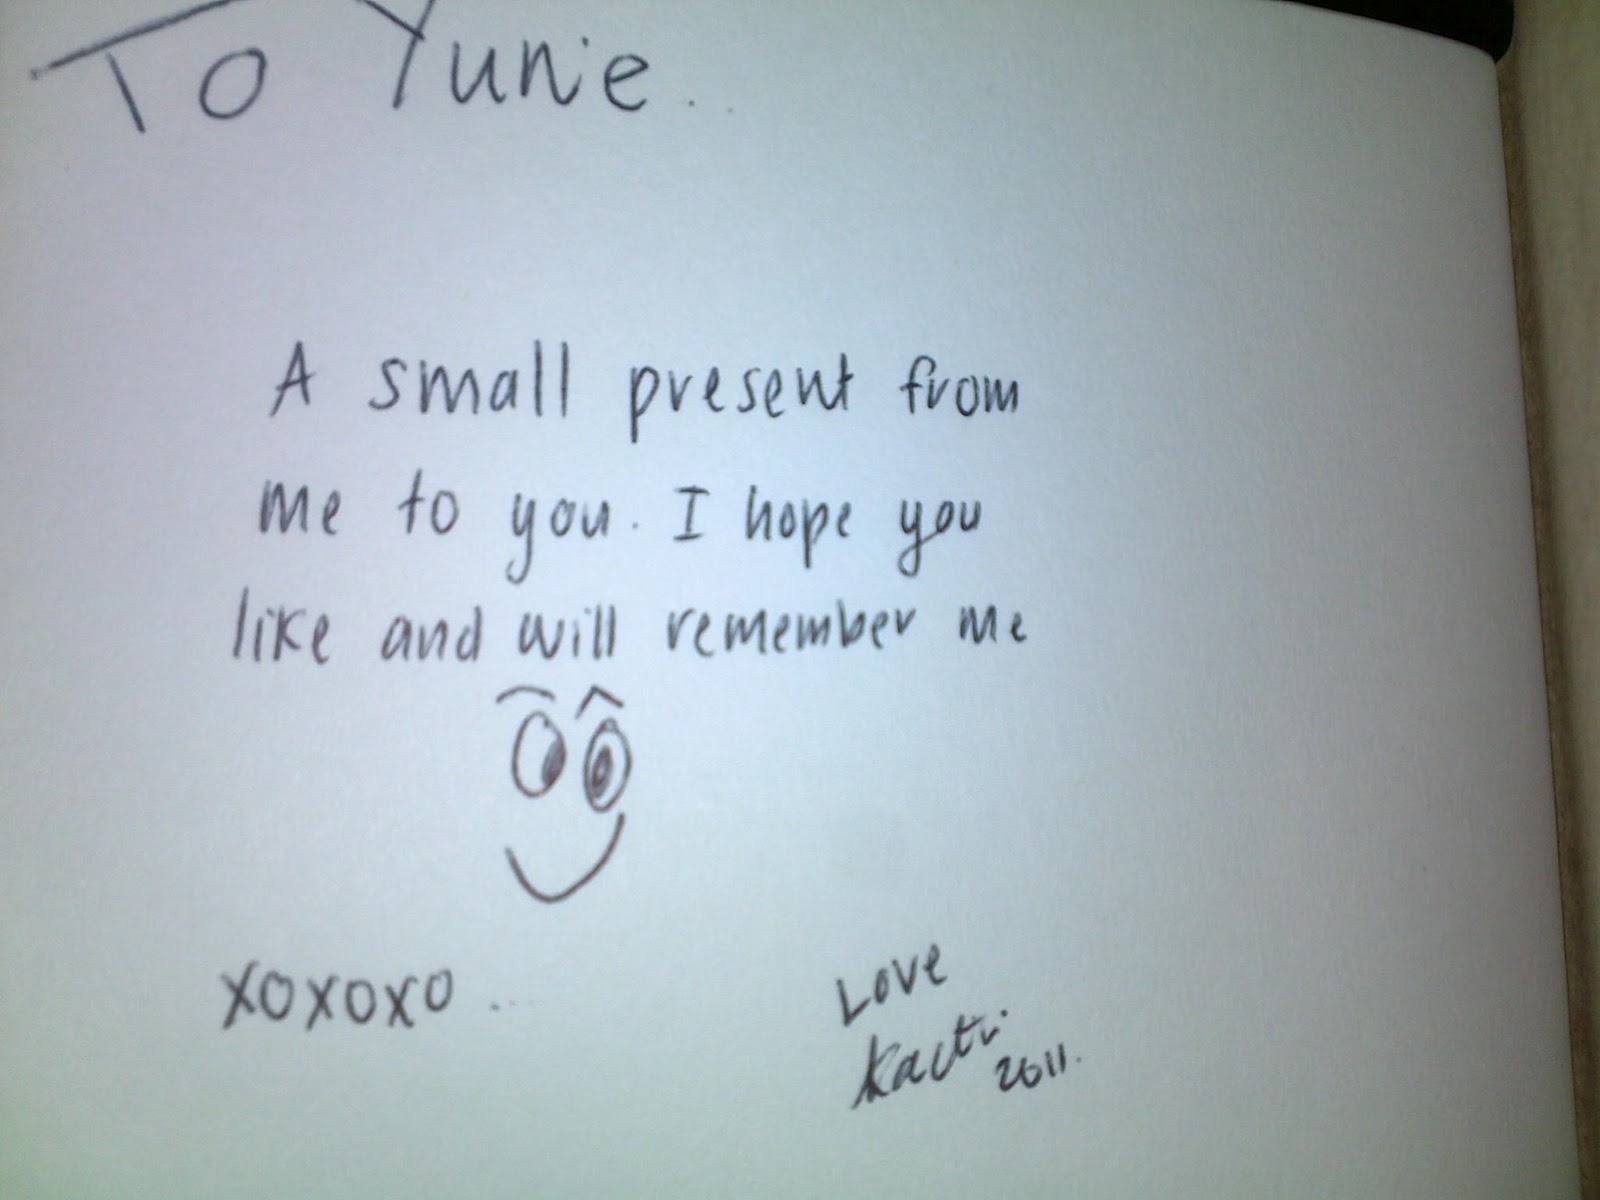 To Yunie.
A small present from
me to you. I hope you
like and will remember me
xoxoxo ...
Love
2011.